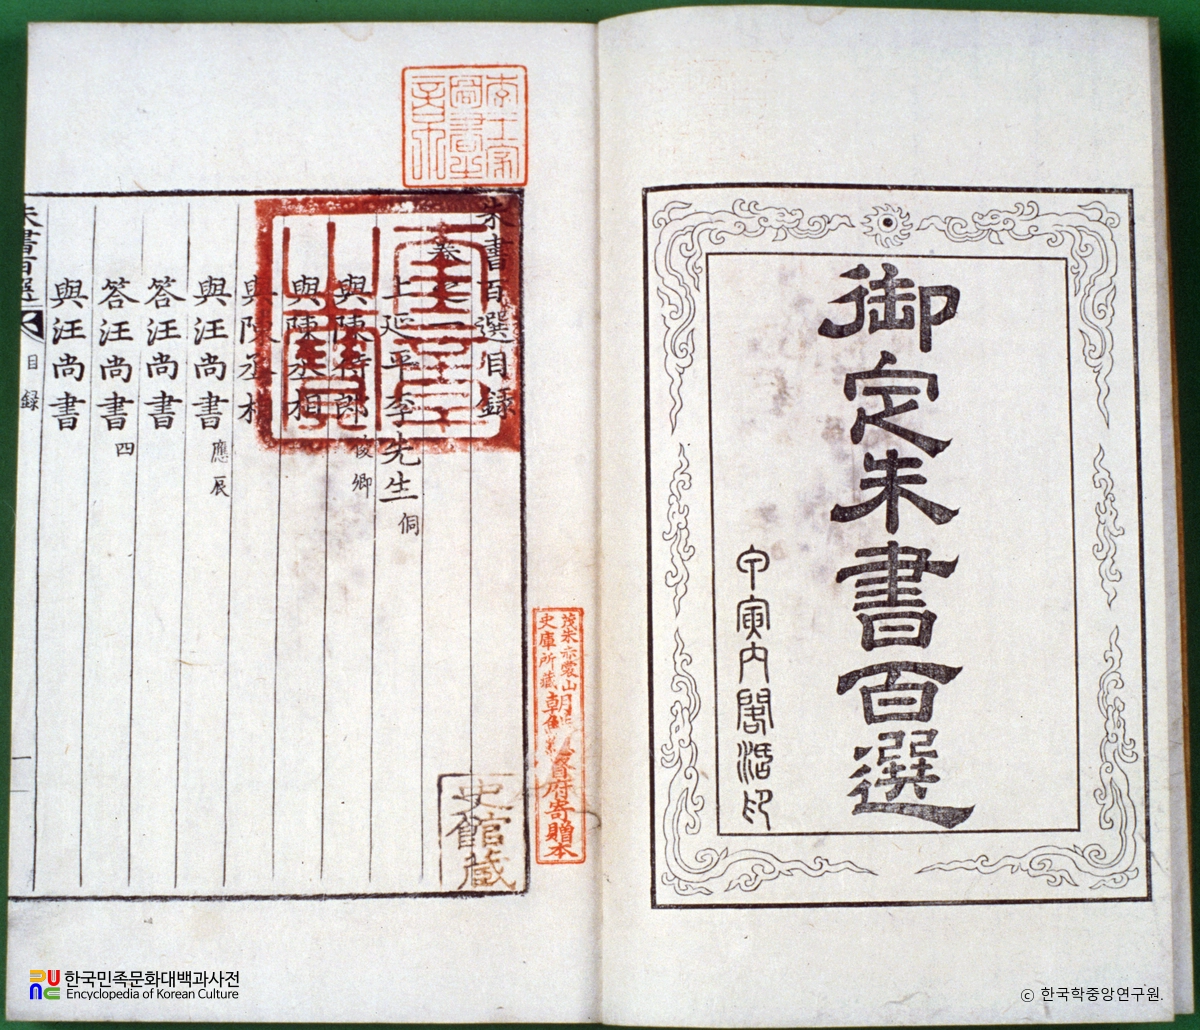 御定朱書百選
甲寅內閣活印
朱書百選目錄
卷之一
上延平李先生 侗
與陳侍郎 俊卿
與陳丞相
與陳丞相
與汪尚書 應辰
答汪尚書
答汪尚書 四
與汪尚書
朱書百選
目錄
李王家
圖書之
章
茂朱赤裳山
史庫所藏朝鮮總督府寄贈本
史館藏
한국민족문화대백과사전
Encyclopedia of Korean Culture
© 한국학중앙연구원.